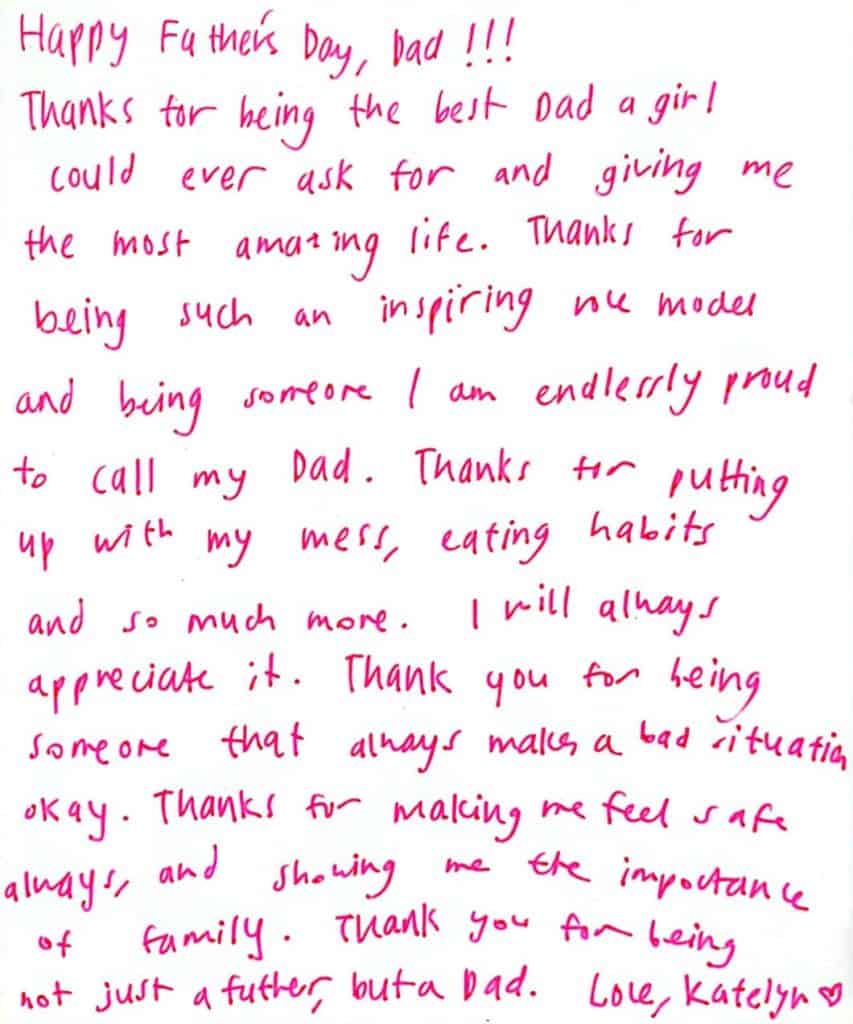 Happy Father's Day, Dad !!!
Thanks for being the best Dad a girl
could ever ask for and giving me
the most amazing life. Thanks for
being such an inspiring role model
and being someone I am endlessly proud
to call my Dad. Thanks for putting
up with my mess, eating habits
and so much more. I will always
appreciate it. Thank you for being
someone that always makes a bad situation
okay. Thanks for making me feel safe
always, and showing me the importance
of family. Thank you for being
not just a father, but a Dad. Love, Katelyn ♡